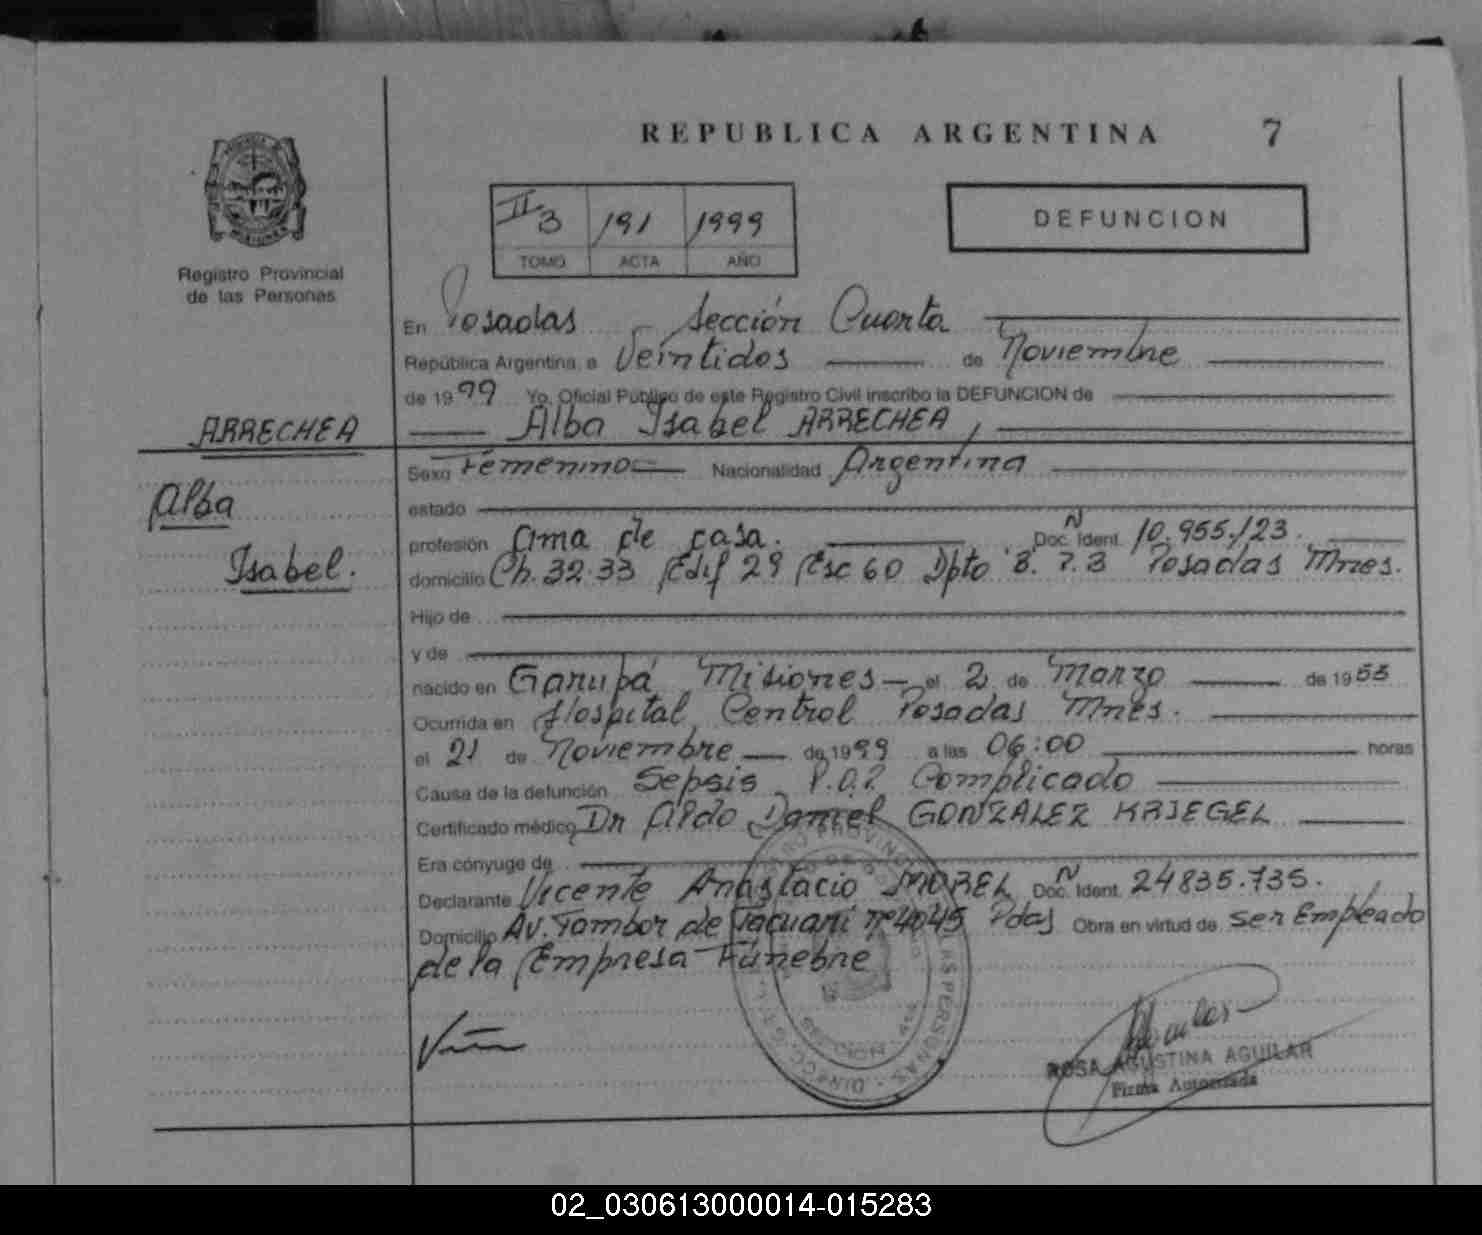 REPUBLICA ARGENTINA 7
II 3 191 1999
TOMO ACTA AÑO
DEFUNCION
Registro Provincial
de las Personas
En Posadas Sección Cuarta
República Argentina, a Veintidos de Noviembre
de 1999 Yo, Oficial Público de este Registro Civil inscribo la DEFUNCION de
ARRECHEA
Alba
Isabel.
Alba Isabel ARRECHEA
Sexo Femenino Nacionalidad Argentina
estado
profesión Ama de casa. Doc. Ident. Nº 10.955.123.
domicilio Ch. 32.33 Edif 29 Esc 60 Dpto "B" Posadas Mnes.
Hijo de
y de
nacido en Garupá Misiones el 2 de Marzo de 1953
Ocurrida en Hospital Central Posadas Mnes.
el 21 de Noviembre de 1999 a las 06:00 horas
Causa de la defunción Sepsis P.O.P. Complicado
Certificado médico Dr Aldo Daniel GONZALEZ KRIEGEL
Era cónyuge de
Declarante Vicente Anastacio MOREL Doc. Ident. Nº 24835.735.
Domicilio Av. Tambor de Tacuari nº 4045 Pdas Obra en virtud de ser Empleado
de la Empresa Fúnebre
ROSA AGUSTINA AGUILAR
Firma Autorizada
02_030613000014-015283